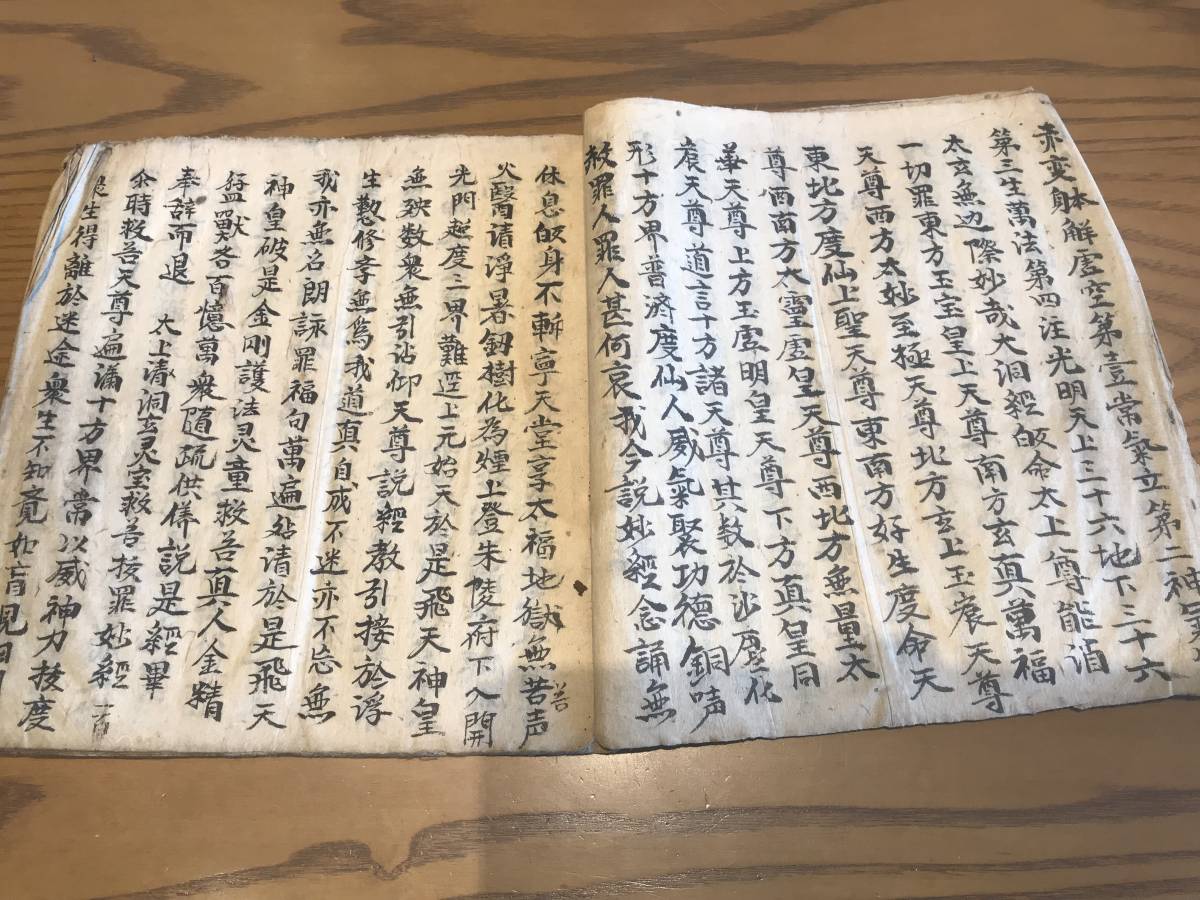 赤变身本解虛空第壹常氣立第二神
第三生萬法第四注光明天上三十六地下三十六
太玄無边際妙哉大洞經皈命太上尊能消
一切罪東方玉宝皇上天尊南方玄真萬福
天尊西方太妙至極天尊北方玄上玉宸天尊
東北方度仙上聖天尊東南方好生度命天
尊西南方太靈虛皇天尊西北方無量太
華天尊上方玉虛明皇天尊下方真皇洞
天尊道言十方諸天尊其数於沙塵化
形十方界普濟度仙人威氣聚功德銅声
救罪人罪人甚何哀我今説妙經念誦無
休息皈身不暫寧天堂享太福地獄無苦声
火醫清淨暑釼樹化為煙上登朱陵府下入開
光門超度三界難逕上元始天於是飛天神皇
無殃数衆無引詀仰天尊説經教引接於浮
生懃修孝無為我道真自成不迷亦不忘無
我亦無名朗詠罪福句萬遍始清於是飛天
神皇破是金剛護法灵童救苦真人金精
猛獸各百憶萬衆隨疏供俻説是經畢
奉辞而退 太上清洞玄灵宝救苦拔罪妙經
尒時救苦天尊遍满十方界常以威神力拔度
衆生得離於迷途衆生不知竟如盲見日月